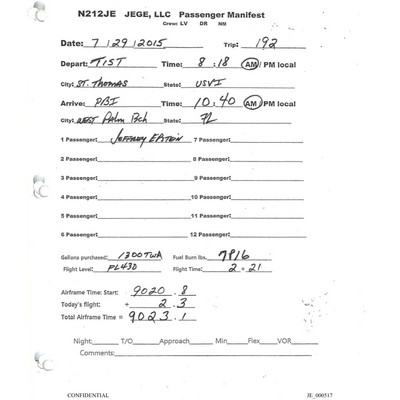 N212JE JEGE, LLC Passenger Manifest
Crew: LV DR NM
Date: 7 / 29 / 2015 Trip: 192
Depart: TIST Time: 8 : 18 AM / PM local
City: ST. Thomas State: USVI
Arrive: PBI Time: 10 : 40 AM / PM local
City: West Palm Bch State: FL
1 Passenger: Jeffrey 7 Passenger:
2 Passenger: 8 Passenger:
3 Passenger: 9 Passenger:
4 Passenger: 10 Passenger:
5 Passenger: 11 Passenger:
6 Passenger: 12 Passenger:
Gallons purchased: 1300TWA Fuel Burn lbs. 7916
Flight Level: FL430 Flight Time: 2 + 21
Airframe Time: Start: 9020 . 8
Today's flight: + 2 . 3
Total Airframe Time = 9023 . 1
Night: T/O Approach Min Flex VOR
Comments:
CONFIDENTIAL JE_000517